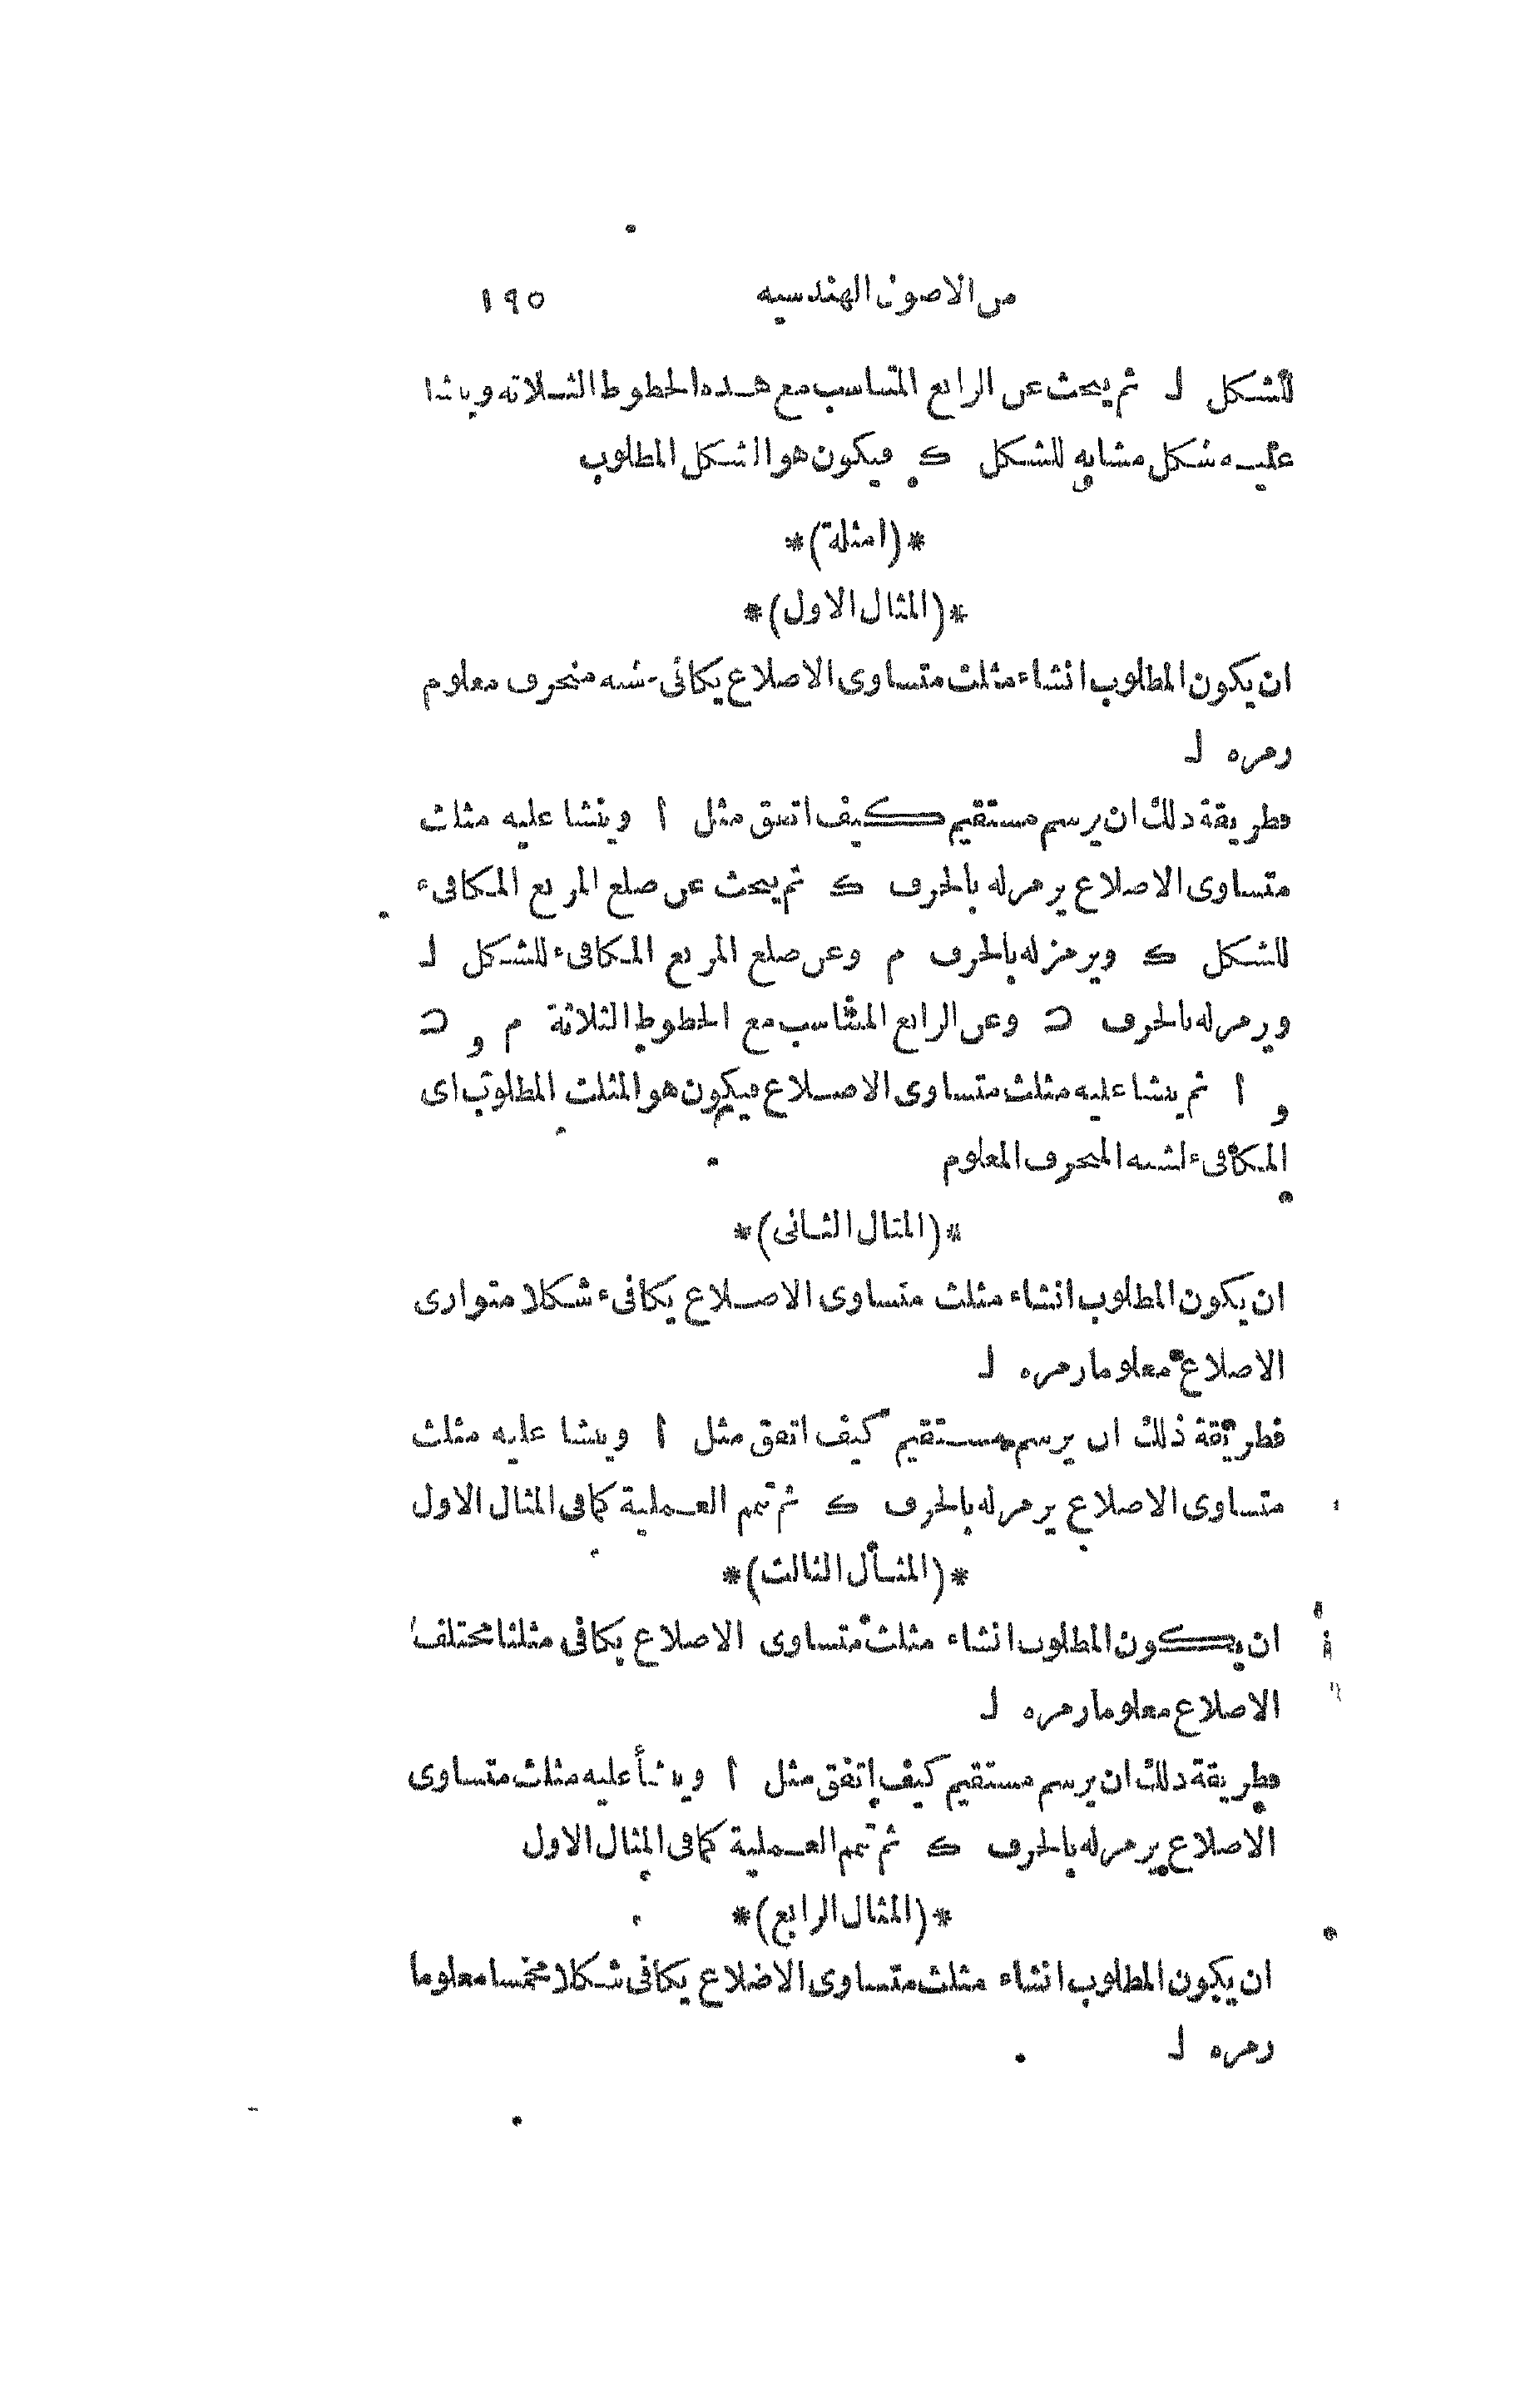 من الاصول الهندسيه ١٩٥
للشكل ل ثم يبحث عن الرابع المتناسب مع هذه الخطوط الثلاثه وينشا
عليه شكل مشابه للشكل ك فيكون هو الشكل المطلوب
*(امثلة)*
*(المثال الاول)*
ان يكون المطلوب انشاء مثلث متساوى الاضلاع يكافى شبه منحرف معلوم
رمزه ل
فطريقة ذلك ان يرسم مستقيم كيف اتفق مثل أ وينشا عليه مثلث
متساوى الاضلاع يرمز له بالحرف ك ثم يبحث عن ضلع المربع المكافىء
للشكل ك ويرمز له بالحرف م وعن ضلع المربع المكافىء للشكل ل
ويرمز له بالحرف ح وعن الرابع المتناسب مع الخطوط الثلاثة م و ح
و أ ثم ينشا عليه مثلث متساوى الاضلاع فيكون هو المثلث المطلوب اى
المكافىء لشبه المنحرف المعلوم
*(المثال الثانى)*
ان يكون المطلوب انشاء مثلث متساوى الاضلاع يكافىء شكلا متوازى
الاضلاع معلوما رمزه ل
فطريقة ذلك ان يرسم مستقيم كيف اتفق مثل أ وينشا عليه مثلث
متساوى الاضلاع يرمز له بالحرف ك ثم تتمم العملية كما فى المثال الاول
*(المثال الثالث)*
ان يكون المطلوب انشاء مثلث متساوى الاضلاع يكافى مثلثا مختلف
الاضلاع معلوما رمزه ل
فطريقة ذلك ان يرسم مستقيم كيف اتفق مثل أ وينشأ عليه مثلث متساوى
الاضلاع يرمز له بالحرف ك ثم تتمم العملية كما فى المثال الاول
*(المثال الرابع)*
ان يكون المطلوب انشاء مثلث متساوى الاضلاع يكافى شكلا مخمسا معلوما
رمزه ل